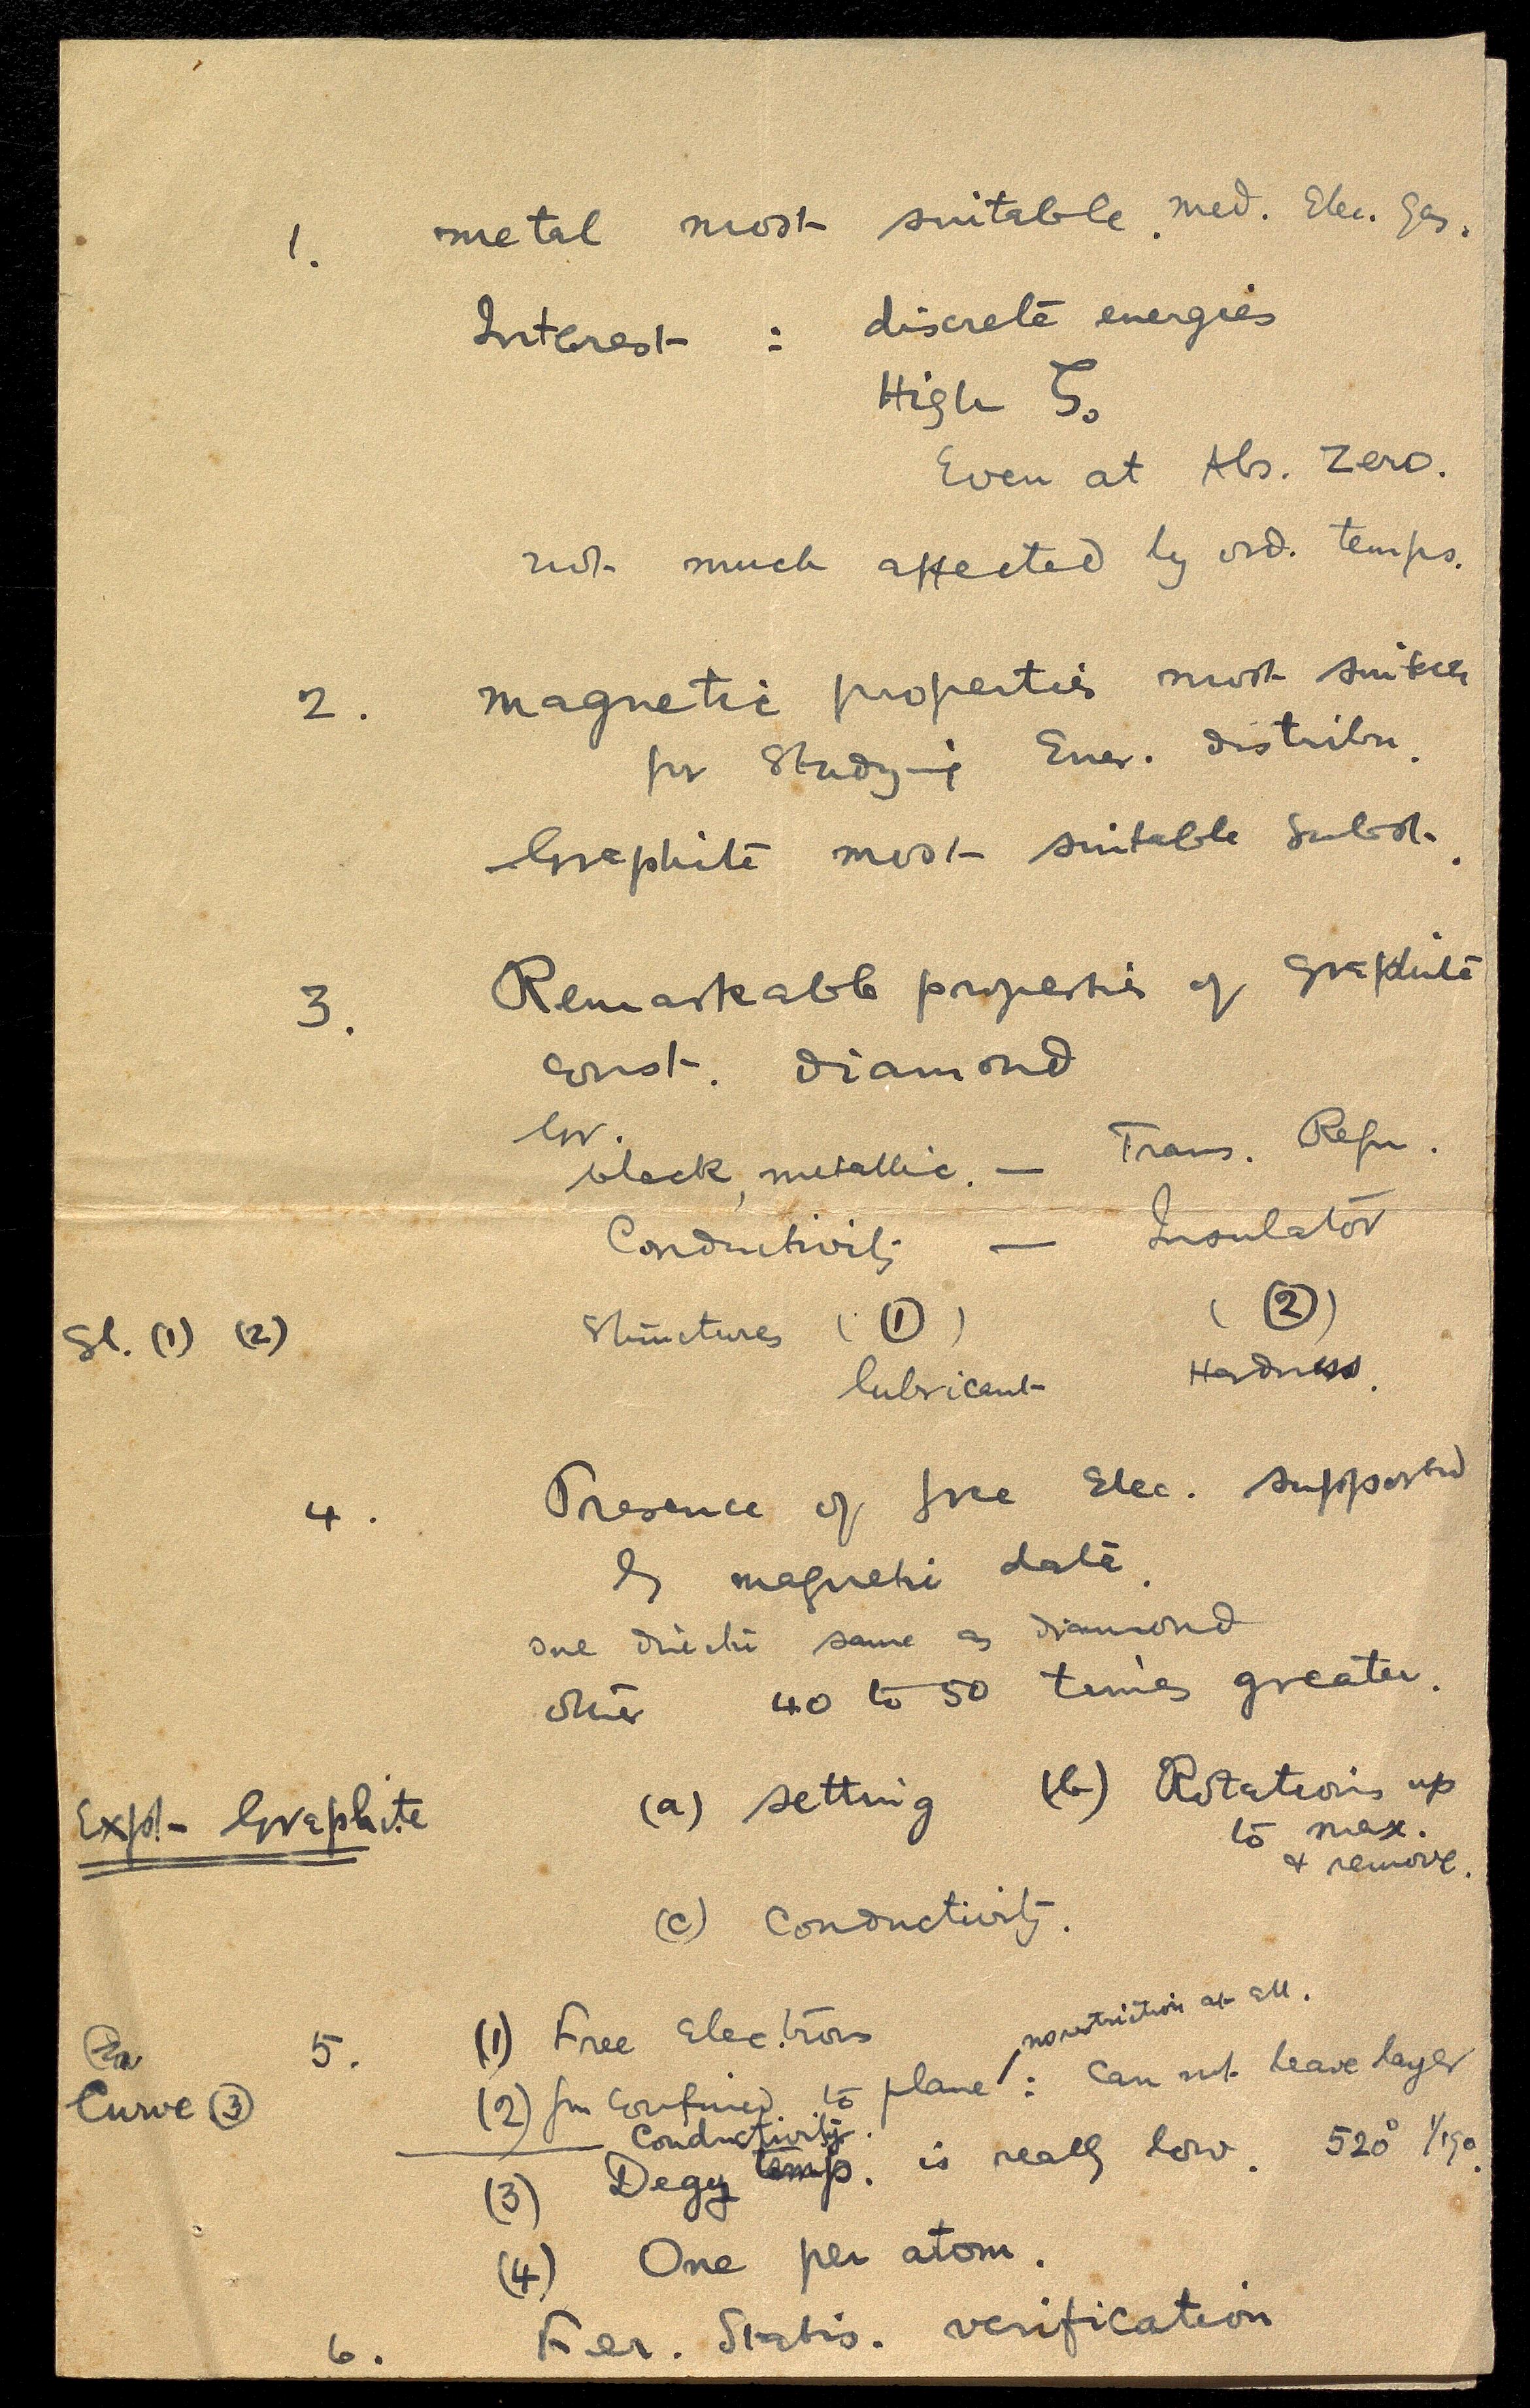 1. metal most suitable. med. Elec. Gas.
Interest : discrete energies
High ζ₀
Even at Abs. Zero.
not much affected by ord. temps.
2. magnetic properties most
for studying Ener. distribn.
Graphite most suitable subst.
3. Remarkable properties of graphite
const. diamond
Gr.
black, metallic. — Trans. Refr.
Conductivity — Insulator
Sl. (1) (2) Structures (①) (②)
lubricant Hardness.
4. Presence of free Elec. supported
by magnetic data.
one directn same as diamond
other 40 to 50 times greater.
Expt- Graphite (a) setting (b) Rotations up
to max.
& remove.
(c) Conductivity.
no restriction at all.
5. (1) Free Electrons
Curve ③ (2) confined to plane : Can not leave layer
Conductivity.
(3) Degy temp. is really low. 520° 1/190.
(4) One per atom.
6. Fer. Statis. verification